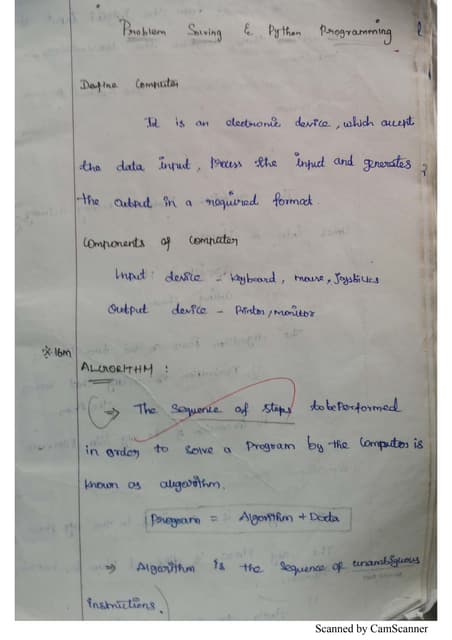 Problem Solving & Python Programming
Define Computer
It is an electronic device, which accept
the data input, process the input and generates
the output in a required format.
Components of computer
Input device - Keyboard, mouse, Joysticks
Output device - Printer, monitor
※ 16m
ALGORITHM :
⇒ The Sequence of steps to be Performed
in order to solve a Program by the Computer is
known as algorithm.
Program = Algorithm + Data
⇒ Algorithm is the sequence of unambiguous
instructions.
Scanned by CamScanner